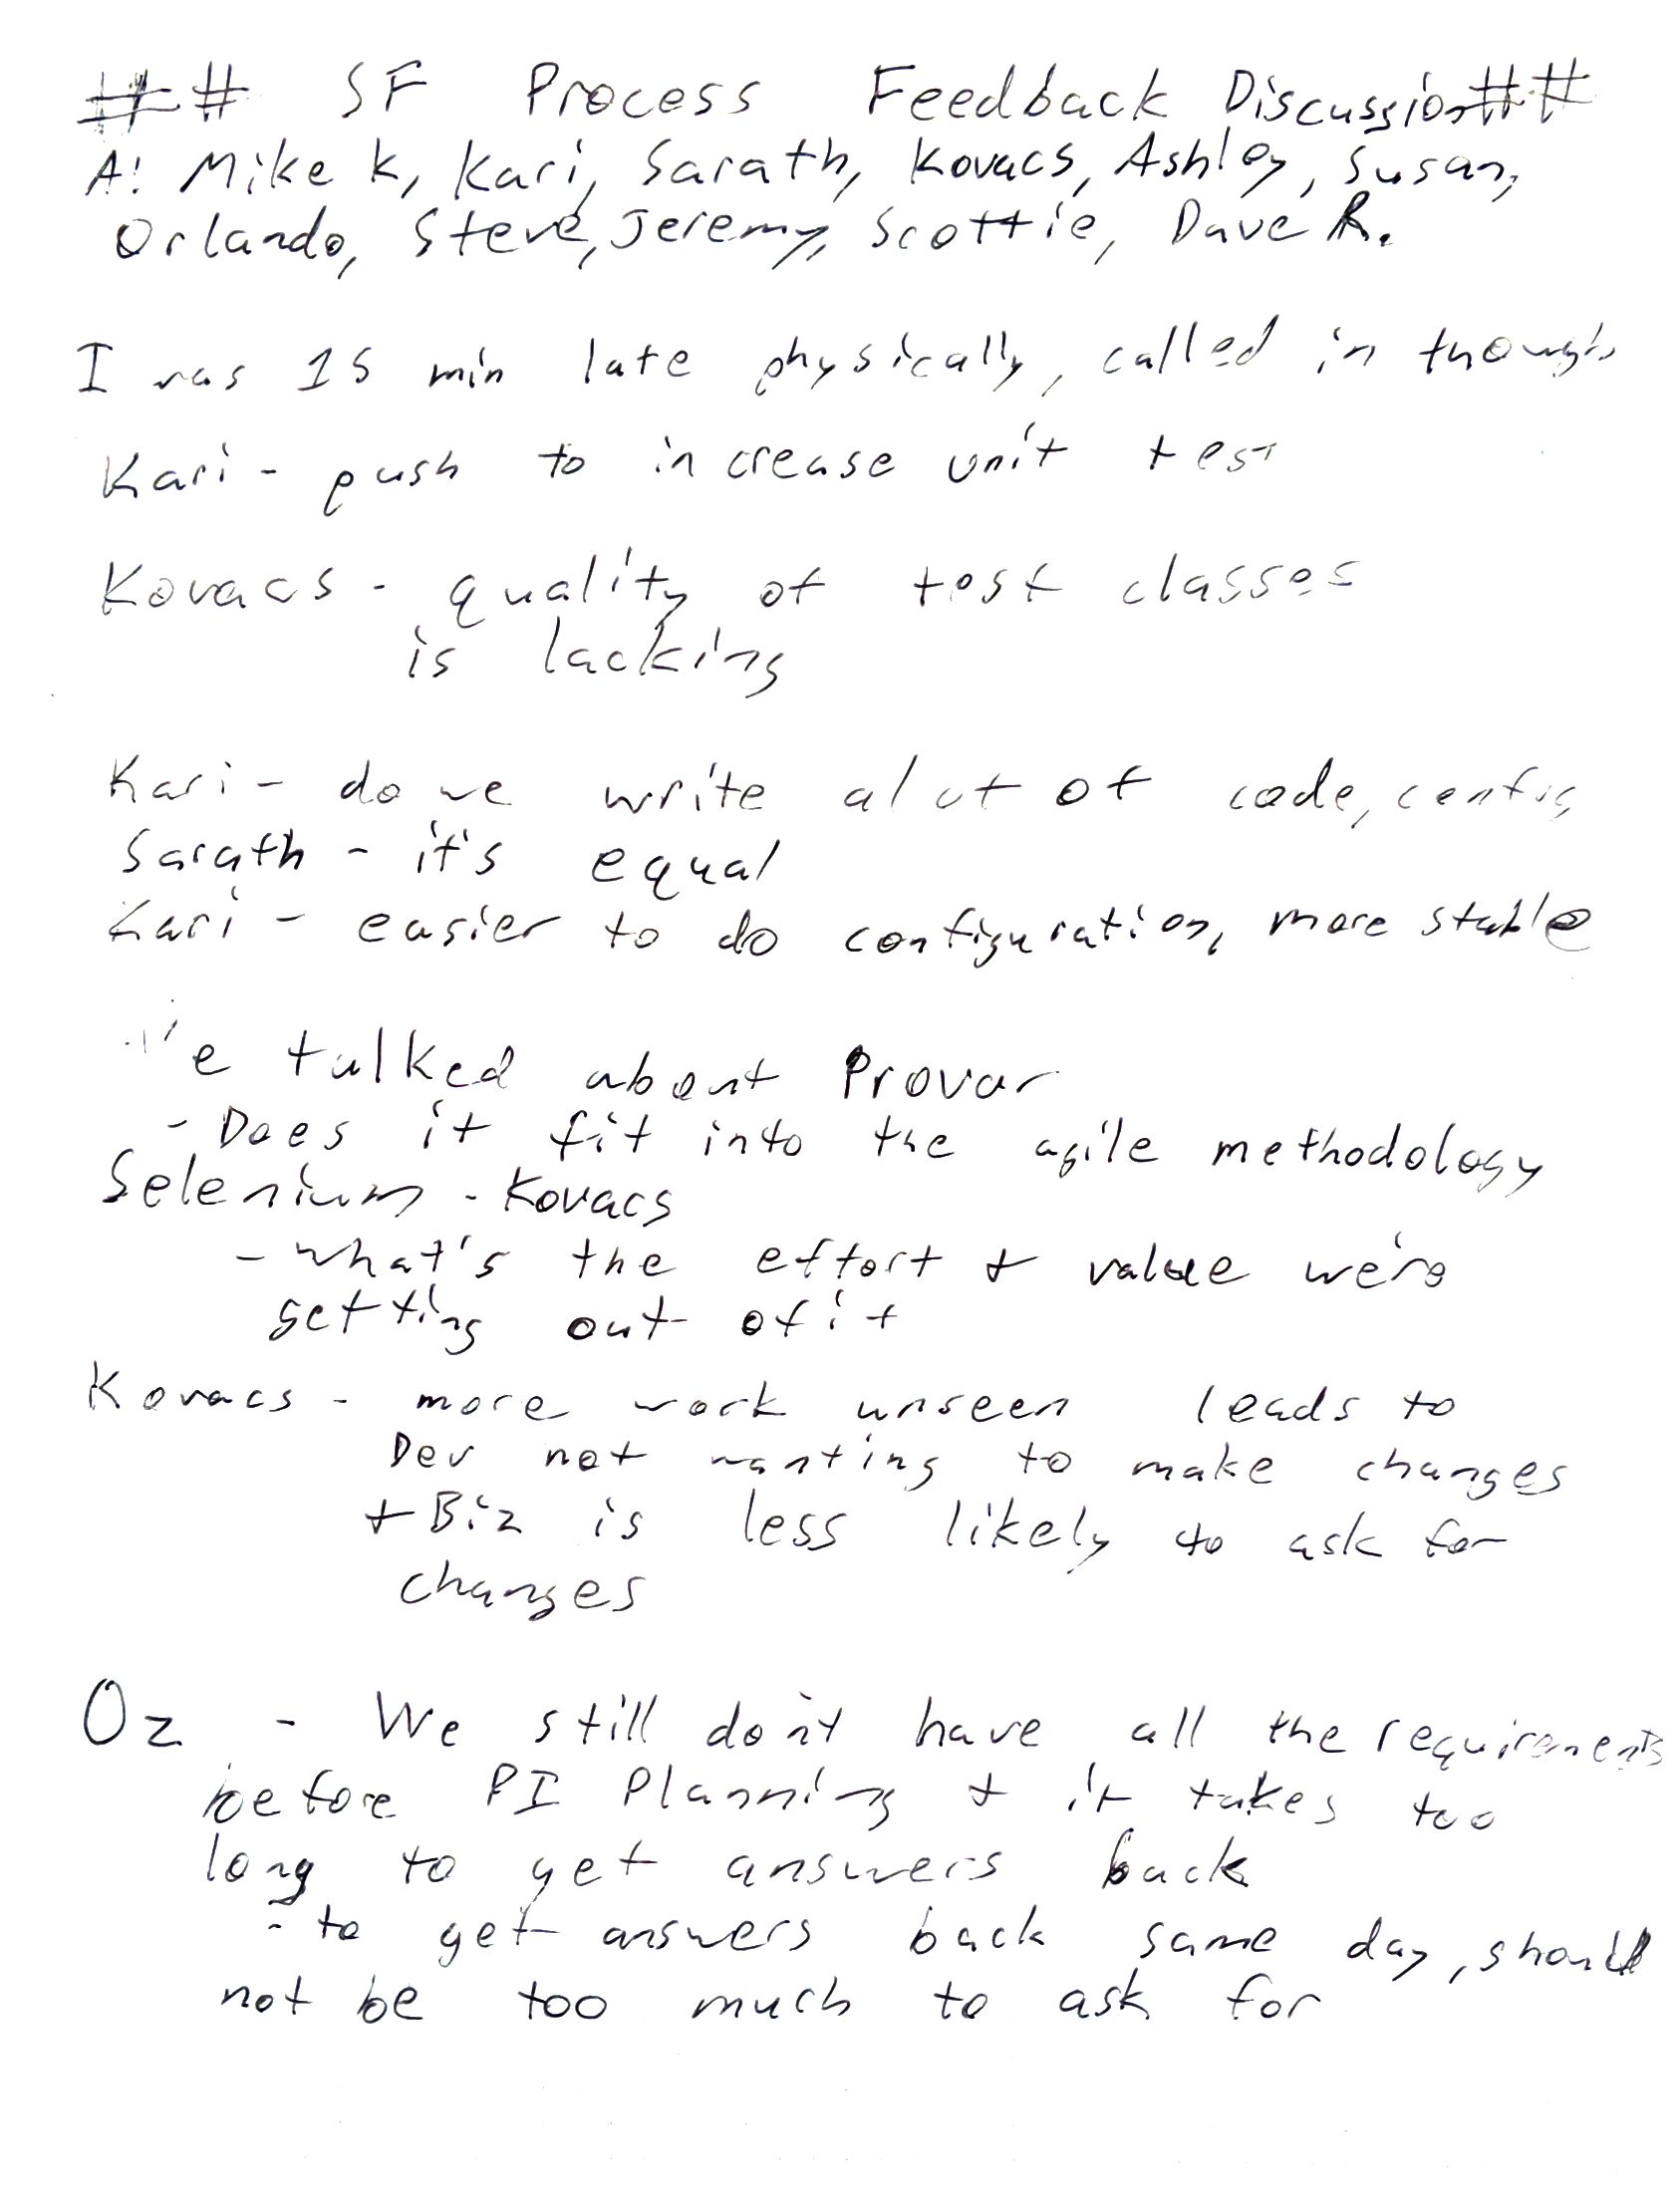 ## SF Process Feedback Discussion##
A: Mike K, Kari, Sarath, Kovacs, Ashley, Susan,
Orlando, Steve, Jeremy, Scottie, Dave R.
I was 15 min late physically, called in though
Kari - push to increase unit test
Kovacs - quality of test classes
is lacking
Kari - do we write alot of code, config
Sarath - it's equal
Kari - easier to do configuration, more stable
We talked about Provar
- Does it fit into the agile methodology
Selenium - Kovacs
- what's the effort + value we're
getting out of it
Kovacs - more work unseen leads to
Dev not wanting to make changes
+ Biz is less likely to ask for
changes
Oz - We still don't have all the requirements
before PI Planning + it takes too
long to get answers back
- to get answers back same day, should
not be too much to ask for